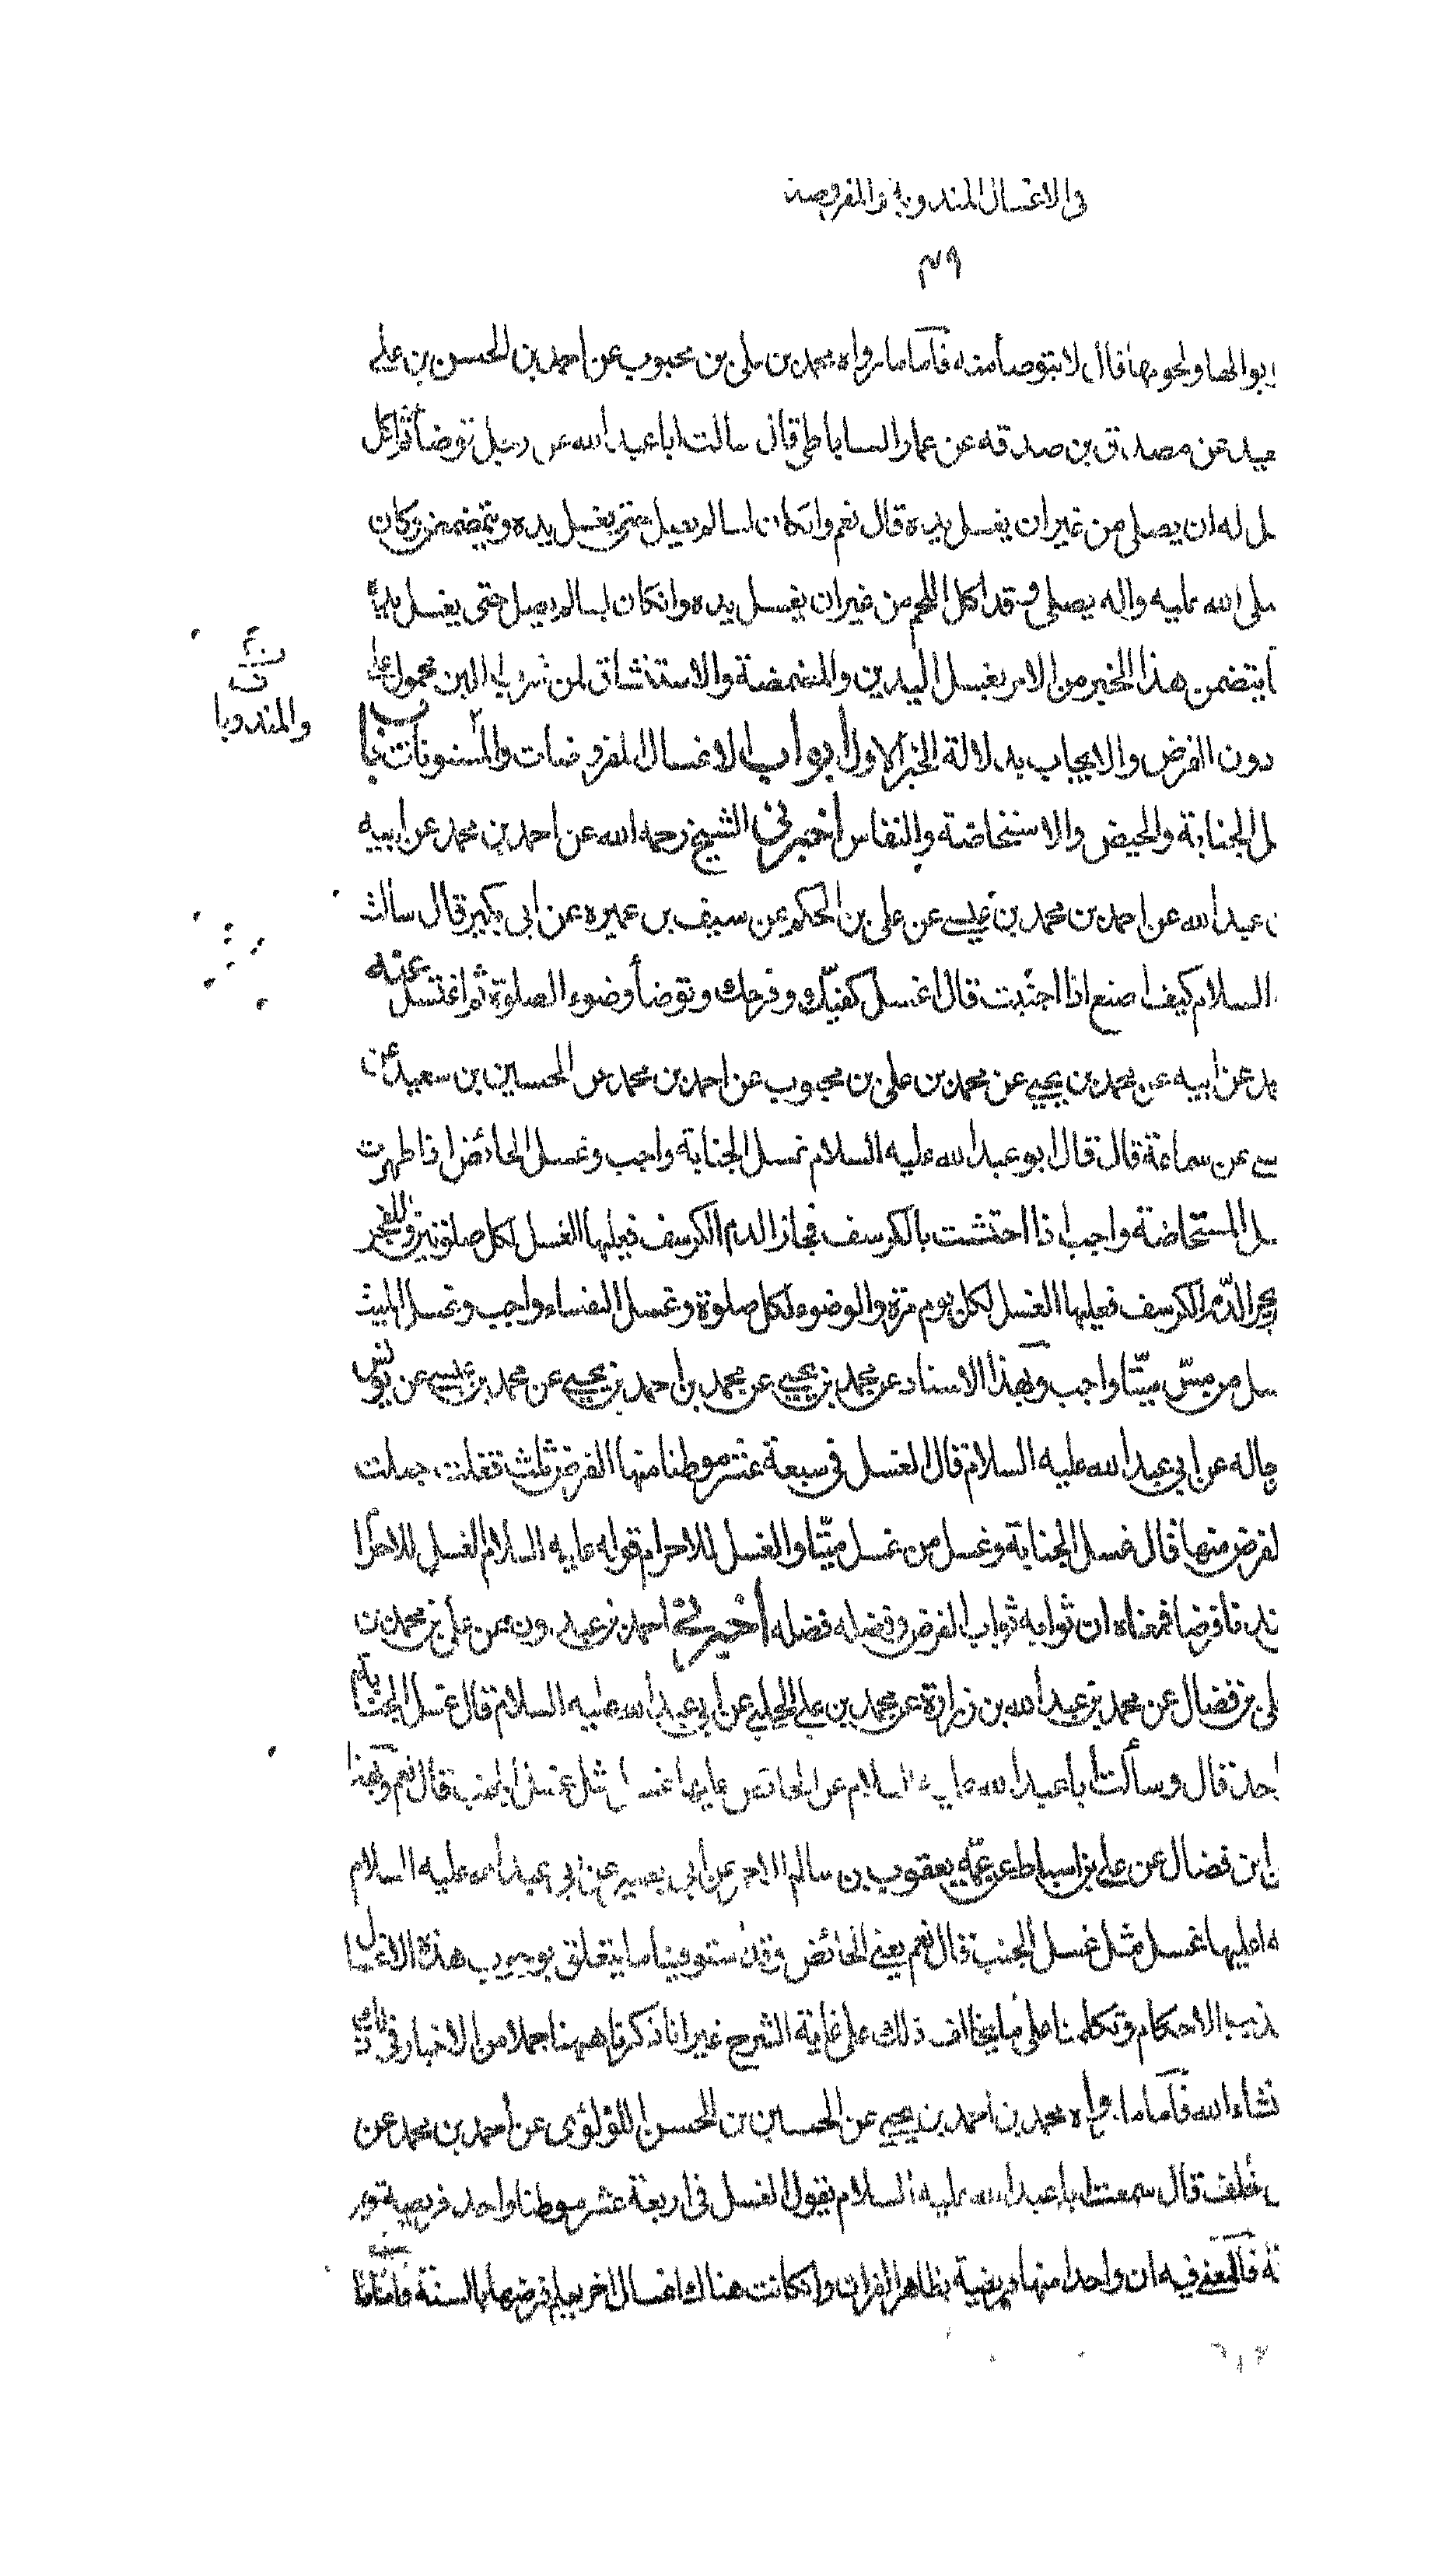 في الاغسال المندوبة والمفروضة
٤٩
ابوالها ولحومها قال لا يتوضأ منه فاما ما رواه محمد بن علي بن محبوب عن احمد بن الحسن بن علي
عن مصدق بن صدقه عن عمار الساباطي قال سالت ابا عبد الله عن رجل توضأ ثم اكل
له ان يصلي من غير ان يغسل يده قال نعم وانكان لبنا لم يصل حتى يغسل يده ويتمضمض وكان
صلى الله عليه واله يصلي وقد اكل اللحم من غير ان يغسل يده وانكان لبنا لم يصل حتى يغسل يده
يتضمن هذا الخبر من الامر بغسل اليدين والمضمضة والاستنشاق لمن شرب اللبن محمول على
والمندوبا
دون الفرض والايجاب بدلالة الخبر الاول ابواب الاغسال المفروضات والمسنونات باب
الجنابة والحيض والاستحاضة والنفاس اخبرني الشيخ رحمه الله عن احمد بن محمد عن ابيه
عبد الله عن احمد بن محمد بن عيسى عن علي بن الحكم عن سيف بن عميره عن ابي بكير قال سالت
السلام كيف اصنع اذا اجنبت قال اغسل كفيك وفرجك وتوضأ وضوء الصلوة ثم اغتسل عنه
عن ابيه عن محمد بن يحيى عن محمد بن علي بن محبوب عن احمد بن محمد عن الحسين بن سعيد عن
عن سماعة قال قال ابو عبد الله عليه السلام غسل الجنابة واجب وغسل الحائض اذا طهرت
المستحاضة واجب اذا احتشت بالكرسف فجاز الدم الكرسف فعليها الغسل لكل صلوتين وللفجر
يجز الدم الكرسف فعليها الغسل لكل يوم مرة والوضوء لكل صلوة وغسل النفساء واجب وغسل الميت
من مس ميتا واجب وبهذا الاسناد عن محمد بن يحيى عن محمد بن احمد بن يحيى عن محمد بن عيسى عن يونس
رجاله عن ابي عبد الله عليه السلام قال الغسل في سبعة عشر موطنا منها الفرض ثلث فقلت جعلت
الفرض منها قال غسل الجنابة وغسل من غسل ميتا والغسل للاحرام قوله عليه السلام الغسل للاحرام
عندنا فرضا فمعناه ان ثوابه ثواب الفرض وفضله فضله اخبرني احمد بن عبدون عن علي بن محمد بن
علي بن فضال عن محمد بن عبد الله بن زرارة عن محمد بن علي الحلبي عن ابي عبد الله عليه السلام قال غسل الجنابة
واحد قال وسألت ابا عبد الله عليه السلام عن الحائض عليها غسل مثل غسل الجنب قال نعم وبهذا
ابن فضال عن علي بن اسباط عن عمه يعقوب بن سالم الاحمر عن ابي بصير عن ابي عبد الله عليه السلام
اعليها غسل مثل غسل الجنب قال نعم يعني الحائض وقد استوفينا ما يتعلق بوجوب هذه الاغسال
تهذيب الاحكام وتكلمنا على ما يخالف ذلك على غاية الشرح غير انا ذكرنا ههنا جملا من الاخبار في ذلك
انشاء الله فاما ما رواه محمد بن احمد بن يحيى عن الحسين بن الحسن اللؤلؤي عن احمد بن محمد عن
خلف قال سمعت ابا عبد الله عليه السلام يقول الغسل في اربعة عشر موطنا واحد فريضة
فالمعنى فيه ان واحدا منها فريضة بظاهر القران وانكانت هناك اغسال اخر يعلم فرضها بالسنة فاما ما